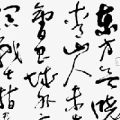 东方欲晓
青山人未
会昌城外
战士指